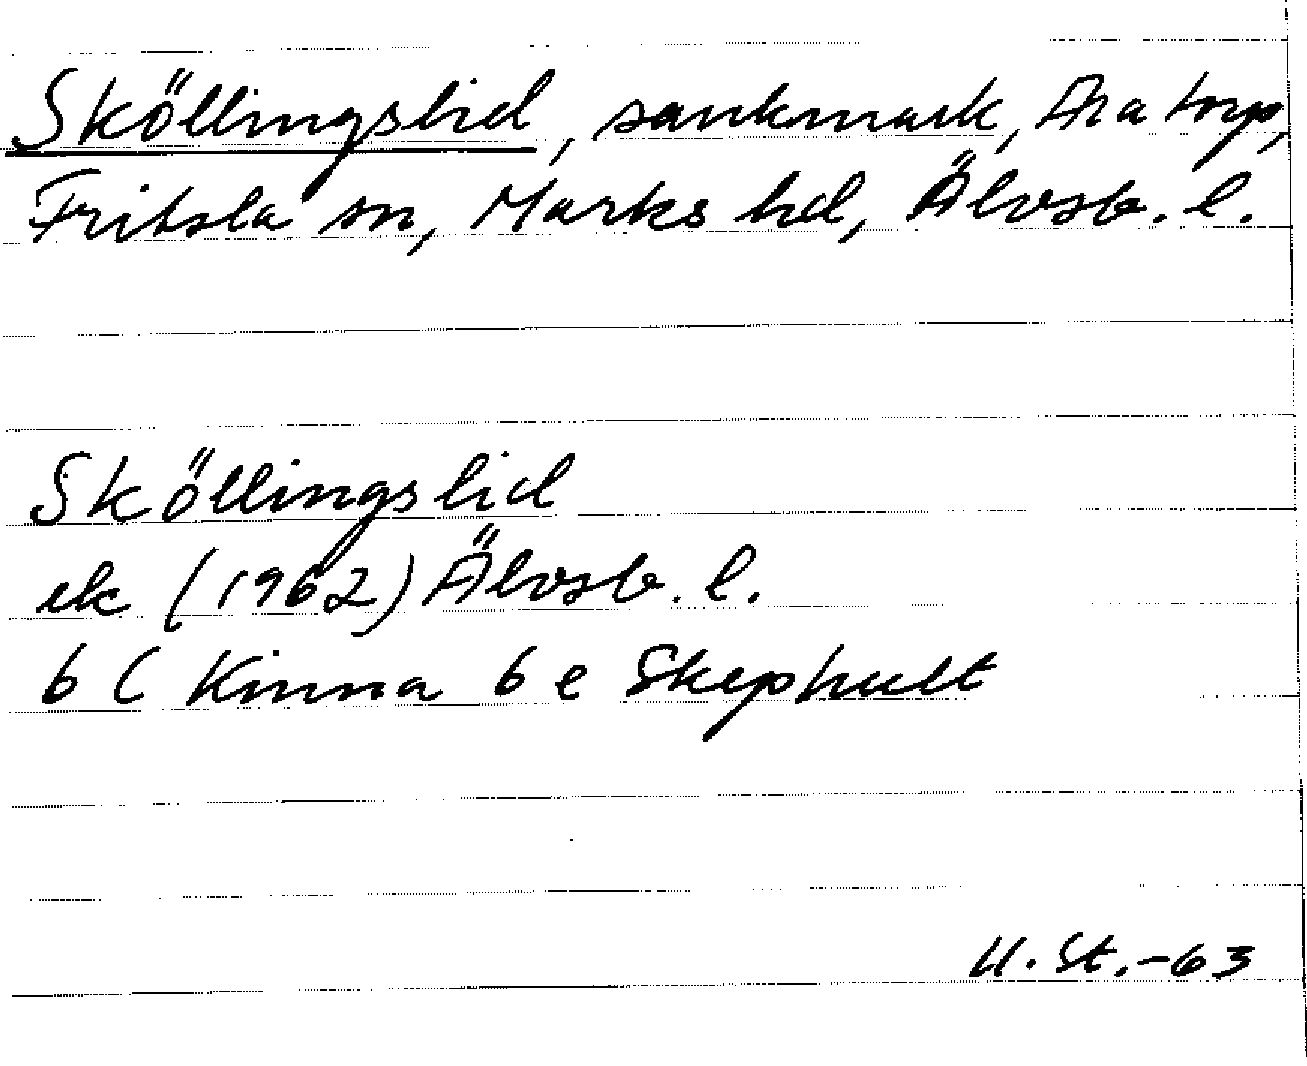 Sköllingslid, sankmark, Aratorp,
Fritsla sn, Marks hd, Älvsb. l.
Sköllingslid
ek (1962) Älvsb. l.
6 C Kinna 6 e Skephult
U. St. -63